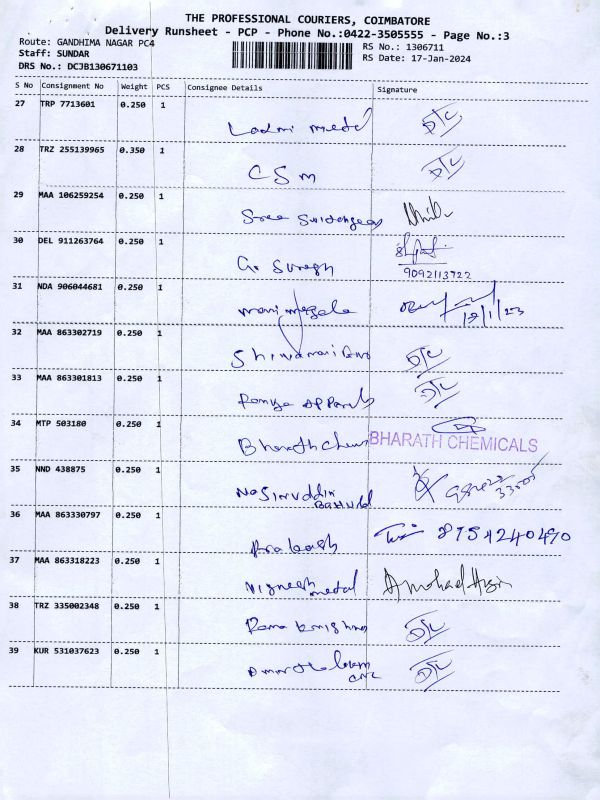 THE PROFESSIONAL COURIERS, COIMBATORE
Delivery Runsheet - PCP - Phone No.:0422-3505555 - Page No.:3
Route: GANDHIMA NAGAR PC4
RS No.: 1306711
Staff: SUNDAR
RS Date: 17-Jan-2024
DRS No.: DCJB130671103
S No Consignment No Weight PCS Consignee Details Signature
27 TRP 7713601 0.250 1
Laxmi D/C
28 TRZ 255139965 0.350 1
C S M D/C
29 MAA 106259254 0.250 1
Sree
30 DEL 911263764 0.250 1
G. Suresh
9092113722
31 NDA 906044681 0.250 1
19/1/23
32 MAA 863302719 0.250 1
D/C
33 MAA 863301813 0.250 1
D/C
34 MTP 503180 0.250 1
Bharath Chem BHARATH CHEMICALS
35 NND 438875 0.250 1
Nasiruddin
36 MAA 863330797 0.250 1
Prakash
37 MAA 863318223 0.250 1
Vignesh metal
38 TRZ 335002348 0.250 1
Rama Krishna D/C
39 KUR 531037623 0.250 1
D/C